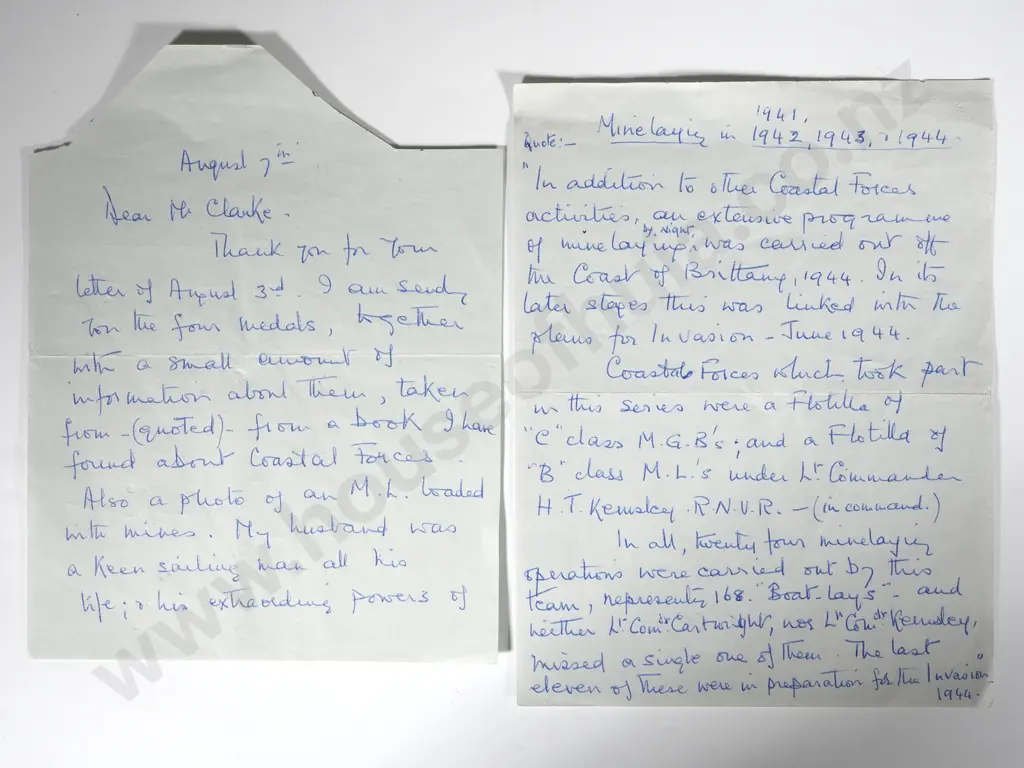 August 7th
Dear Mr Clarke.
Thank you for your
letter of August 3rd. I am sending
you the four medals, together
with a small amount of
information about them, taken
from -(quoted)- from a book I have
found about Coastal Forces.
Also a photo of an M.L. loaded
with mines. My husband was
a keen sailing man all his
life; & his extraording powers of
1941,
Minelaying in 1942, 1943, & 1944.
Quote:-
"In addition to other Coastal Forces
activities, an extensive programme
by night
of minelaying, was carried out off
the Coast of Brittany, 1944. In its
later stages this was linked with the
plans for Invasion - June 1944.
Coastal Forces which took part
in this series were a Flotilla of
"C" class M.G.B's; and a Flotilla of
"B" class M.L.'s under Lt. Commander
H.T. Kemsley. R.N.V.R. - (in command.)
In all, twenty four minelaying
operations were carried out by this
team, representing 168. "Boat-lays" - and
neither Lt. Comdr Cartwright, nor Lt Comdr Kemsley,
missed a single one of them. The last
eleven of these were in preparation for the Invasion"
1944.
www.houseofhulia.co.nz